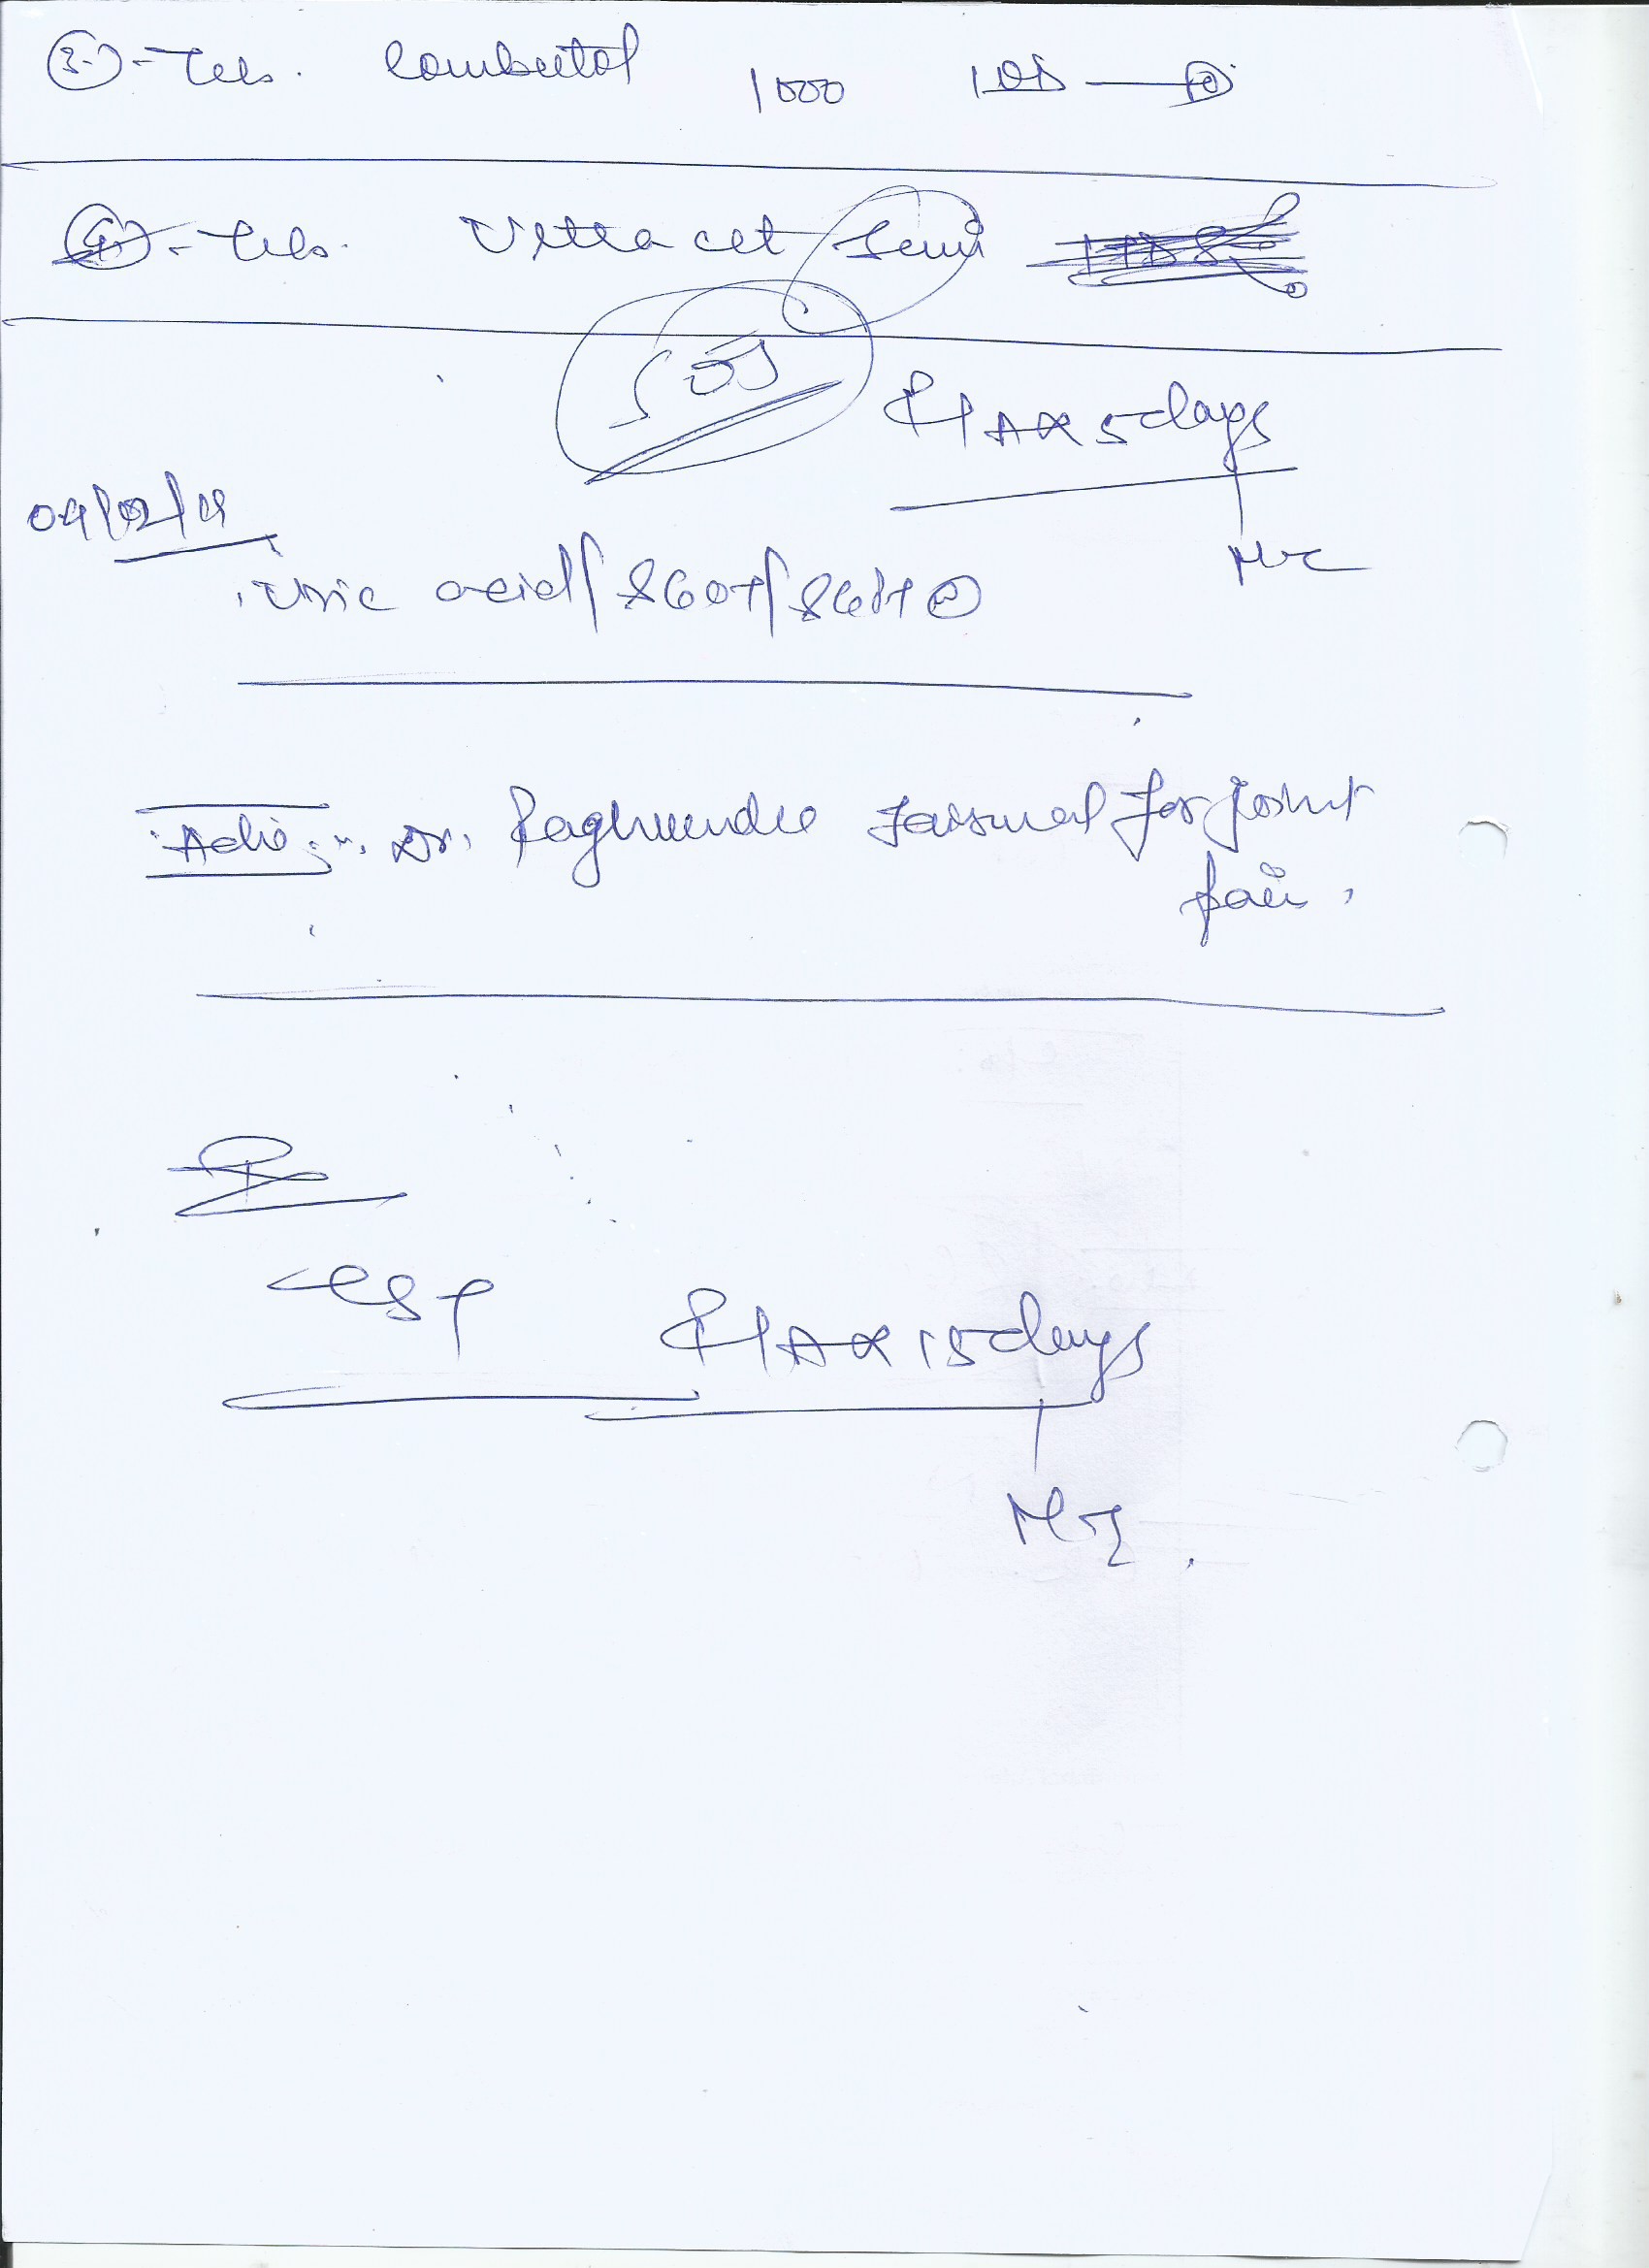 3.) - Tab. Combutol 1000 1 OD
4.) - Tab. Ultracet Semi
SOS
R/A x 5 days
04/02/19
Uric acid / SGOT / SGPT
Advice :- Dr. Raghvendra Jaiswal for Joint
pain.
CST R/A x 15 days